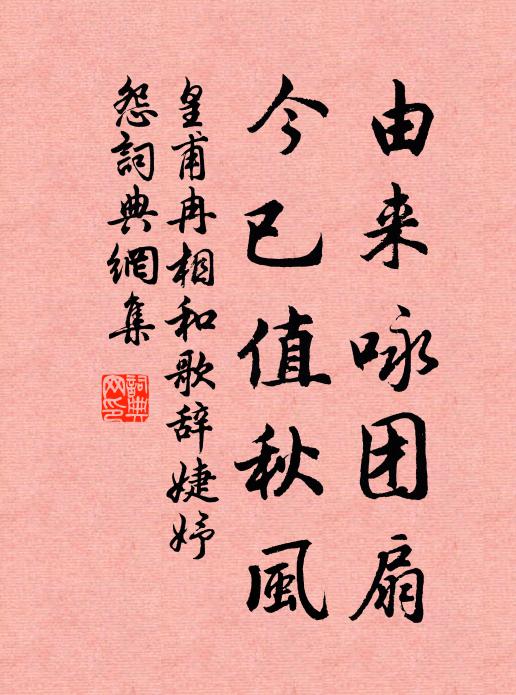 由来咏团扇
今已值秋風
皇甫冉相和歌辞婕妤
怨詞典網集
詞典
网印